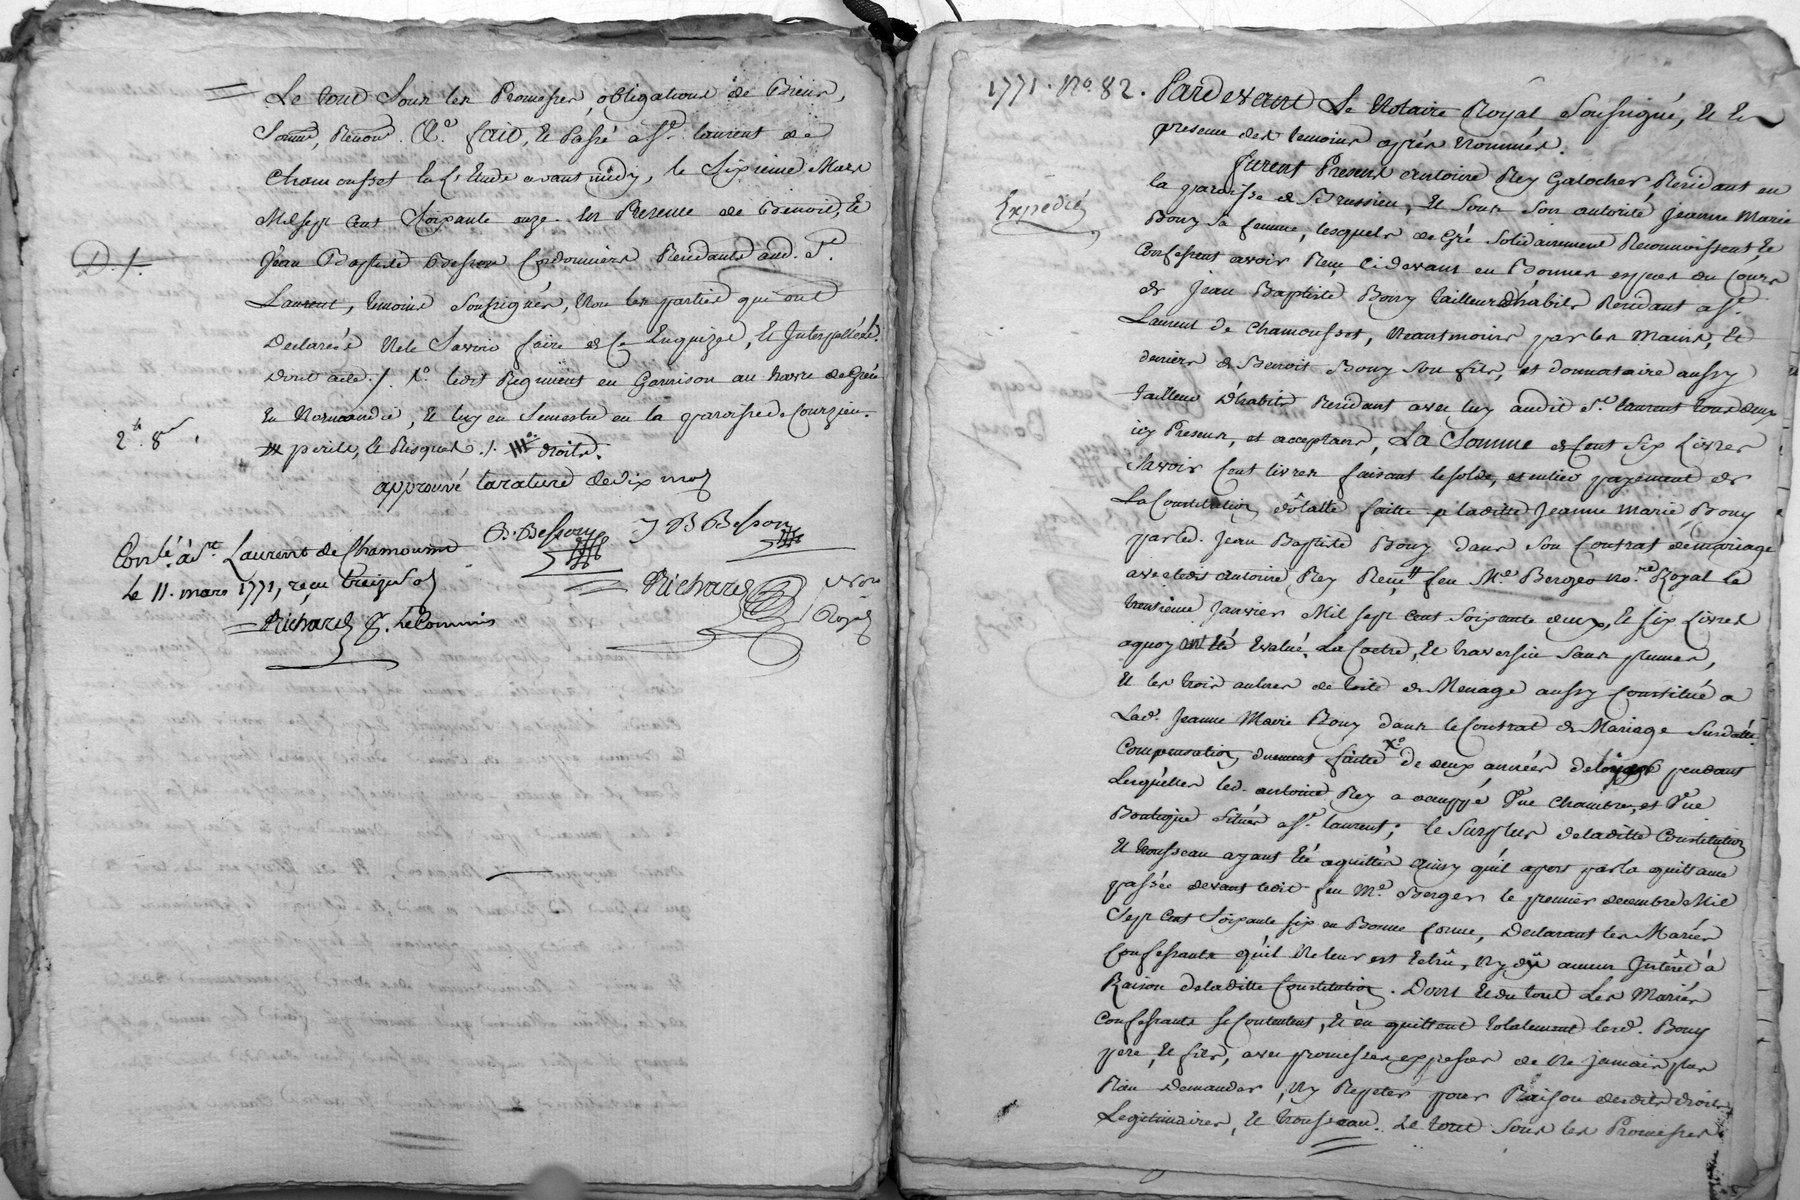 Le tout sous les Promesses, obligations de Biens,
Soum, Renon. &c. fait, et Passé a St. laurent de
chamousset Etude avant midy, le Sixieme Mars
Mil sept cent Soixante onze. En Presence de Benoit, et
Jean Baptiste Besson Cordonniers Residants aud. St.
D. f.
Laurent, temoins Soussignés, Non les parties qui ont
Declarées Ne le Savoir faire de ce Enquizes, et Interpellées.
dont acte ./. ledit Regiment en Garnison au havre de Grace
En Normandie, et luy en Semestre en la paroisse de Courzieu.
perils, et Risques ./. droits.
approuvé la rature de dix mos
B. Besson J B Besson
Conlé. à St. Laurent de Chamousset
Le 11. mars 1771, reçu treize s.
Richard Nore Royal
Richard Le Commis
1771. No. 82. Pardevant Le Notaire Royal Soussigné, Et En
presence des temoins après Nommés.
furent Presens Antoine Rey Galocher Residant en
Expedié
la paroisse de Brussieu, Et Sous Son autorité Jeanne Marie
Bouy Sa femme, lesquels de Gré Solidairement Reconnoissent, Et
Confessent avoir Reçu Cidevant en Bonnes especes du Cours
de Jean Baptiste Bouy tailleur d'habits Residant a St.
Laurent de Chamousset, Neantmoins par les Mains, Et
deniers de Benoit Bouy Son fils, et donnataire aussy
tailleur D'habits Residant avec luy audit St. laurent tous deux
icy Presens, et acceptans, La Somme de Cent Six Livres
Savoir Cent livres faisant le Solde, et entier payement de
La Constitution dôtalle faitte a laditte Jeanne Marie Bouy
par led. Jean Baptiste Bouy dans Son Contrat de mariage
avec ledit Antoine Rey Reçu feu Me. Berger nore. Royal le
trentième Janvier Mil Sept Cent Soixante deux, Et Six Livres
aquoy ont Eté Evalué La Coetre, Et traversin Sans plumes,
Et les trois aulnes de toile de Menage aussy Constitué a
Lad. Jeanne Marie Bouy dans le Contrat de Mariage Susdatté.
Compensation duement faitte de deux années de loyage pendant
Lesquelles led. Antoine Rey a occuppé Une Chambre, et Une
Boutique Situés a St. laurent; le Surplus de laditte Constitution
Et trousseau ayant Eté aquitté ainsy qu'il apert par la quittance
passée devant ledit feu Me. Berger le premier decembre Mil
Sept Cent Soixante Six en Bonne forme, Declarant les Mariés
Confessants qu'il Ne leur est Echû, Ny dû aucun Interêt à
Raison de laditte Constitution. Dont Et du tout Les Mariés
Confessants Se Contentent, Et en quittent totalement lesd. Bouy
pere, Et fils, avec promesses expresses de Ne jamais plus
Rien Demander, Ny Repeter pour Raison desdits droits
Legitimaires, Et trousseau. Le tout Sous les Promesses